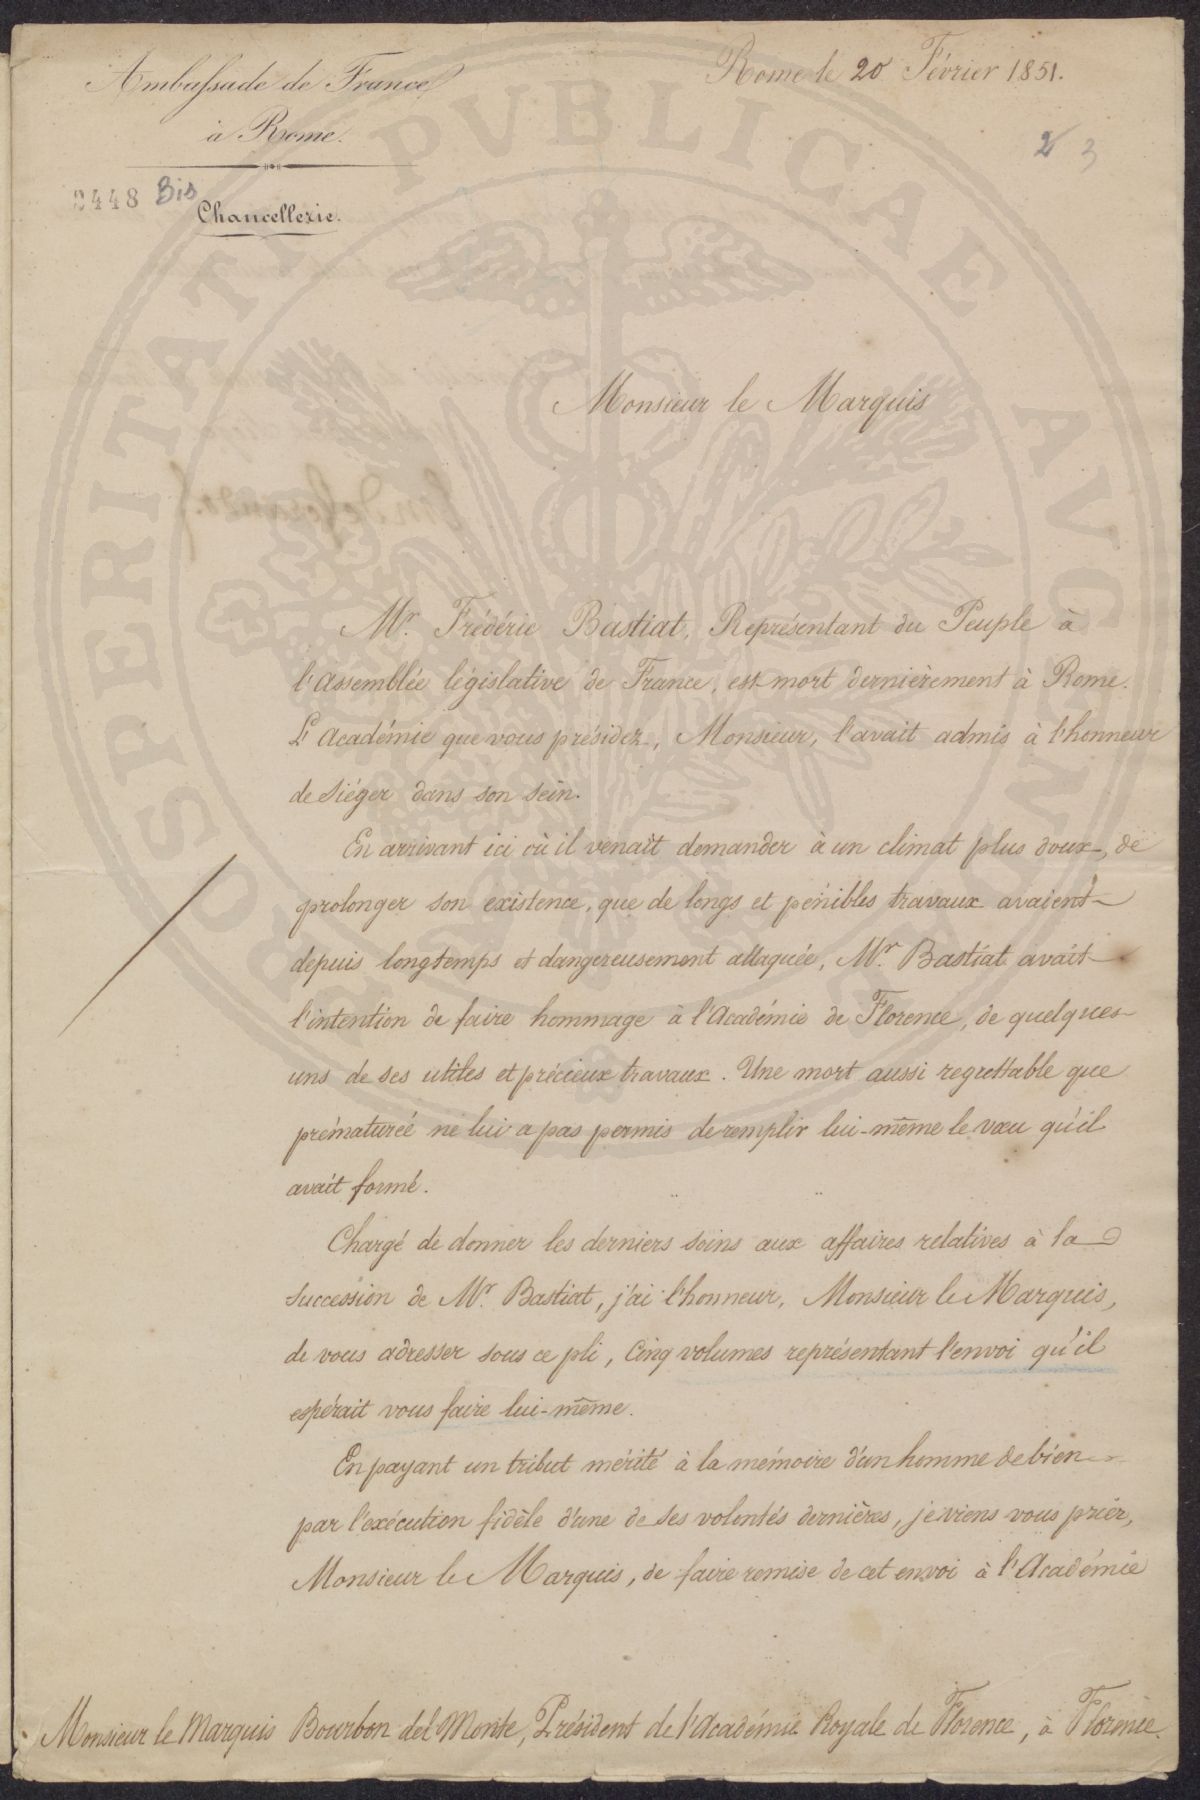 Ambassade de France
à Rome.
Rome le 20 Février 1851.
2 3
2448 Bis
Chancellerie.
Monsieur le Marquis
Mr. Frédéric Bastiat, Représentant du Peuple à
l'Assemblée législative de France, est mort dernièrement à Rome.
L'Académie que vous présidez, Monsieur, l'avait admis à l'honneur
de siéger dans son sein.
En arrivant ici où il venait demander à un climat plus doux, de
prolonger son existence, que de longs et pénibles travaux avaient
depuis longtemps et dangereusement attaquée, Mr. Bastiat avait
l'intention de faire hommage à l'Académie de Florence, de quelques
uns de ses utiles et précieux travaux. Une mort aussi regrettable que
prématurée ne lui a pas permis de remplir lui-même le vœu qu'il
avait formé.
Chargé de donner les derniers soins aux affaires relatives à la
succession de Mr. Bastiat, j'ai l'honneur, Monsieur le Marquis,
de vous adresser sous ce pli, cinq volumes représentant l'envoi qu'il
espérait vous faire lui-même.
En payant un tribut mérité à la mémoire d'un homme de bien
par l'exécution fidèle d'une de ses volontés dernières, je viens vous prier,
Monsieur le Marquis, de faire remise de cet envoi à l'Académie
Monsieur le Marquis Bourbon del Monte, Président de l'Académie Royale de Florence, à Florence.
PROSPERITATI PVBLICAE AVGENDAE